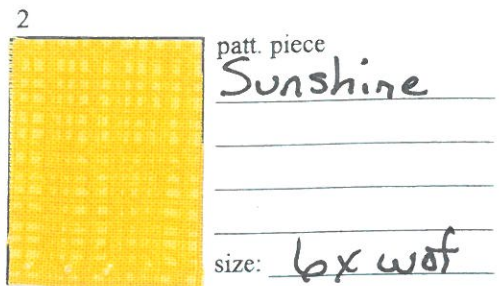 2
patt. piece
Sunshine
size: 6x wof